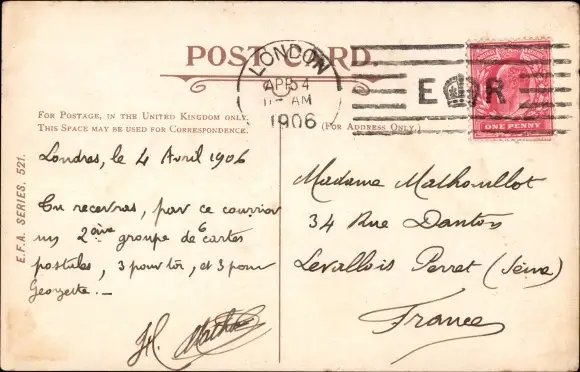 POST CARD.
LONDON
APR 4
AM
1906
E R
ONE PENNY
FOR POSTAGE, IN THE UNITED KINGDOM ONLY,
THIS SPACE MAY BE USED FOR CORRESPONDENCE.
(FOR ADDRESS ONLY.)
E.F.A. SERIES. 521.
Londres, le 4 Avril 1906
Tu recevras, par ce courrier
un 2ème groupe de 6 cartes
postales, 3 pour toi, et 3 pour
Georgette. —
H.
Madame Mathouillot
34 Rue Danton
Levallois Perret (Seine)
France